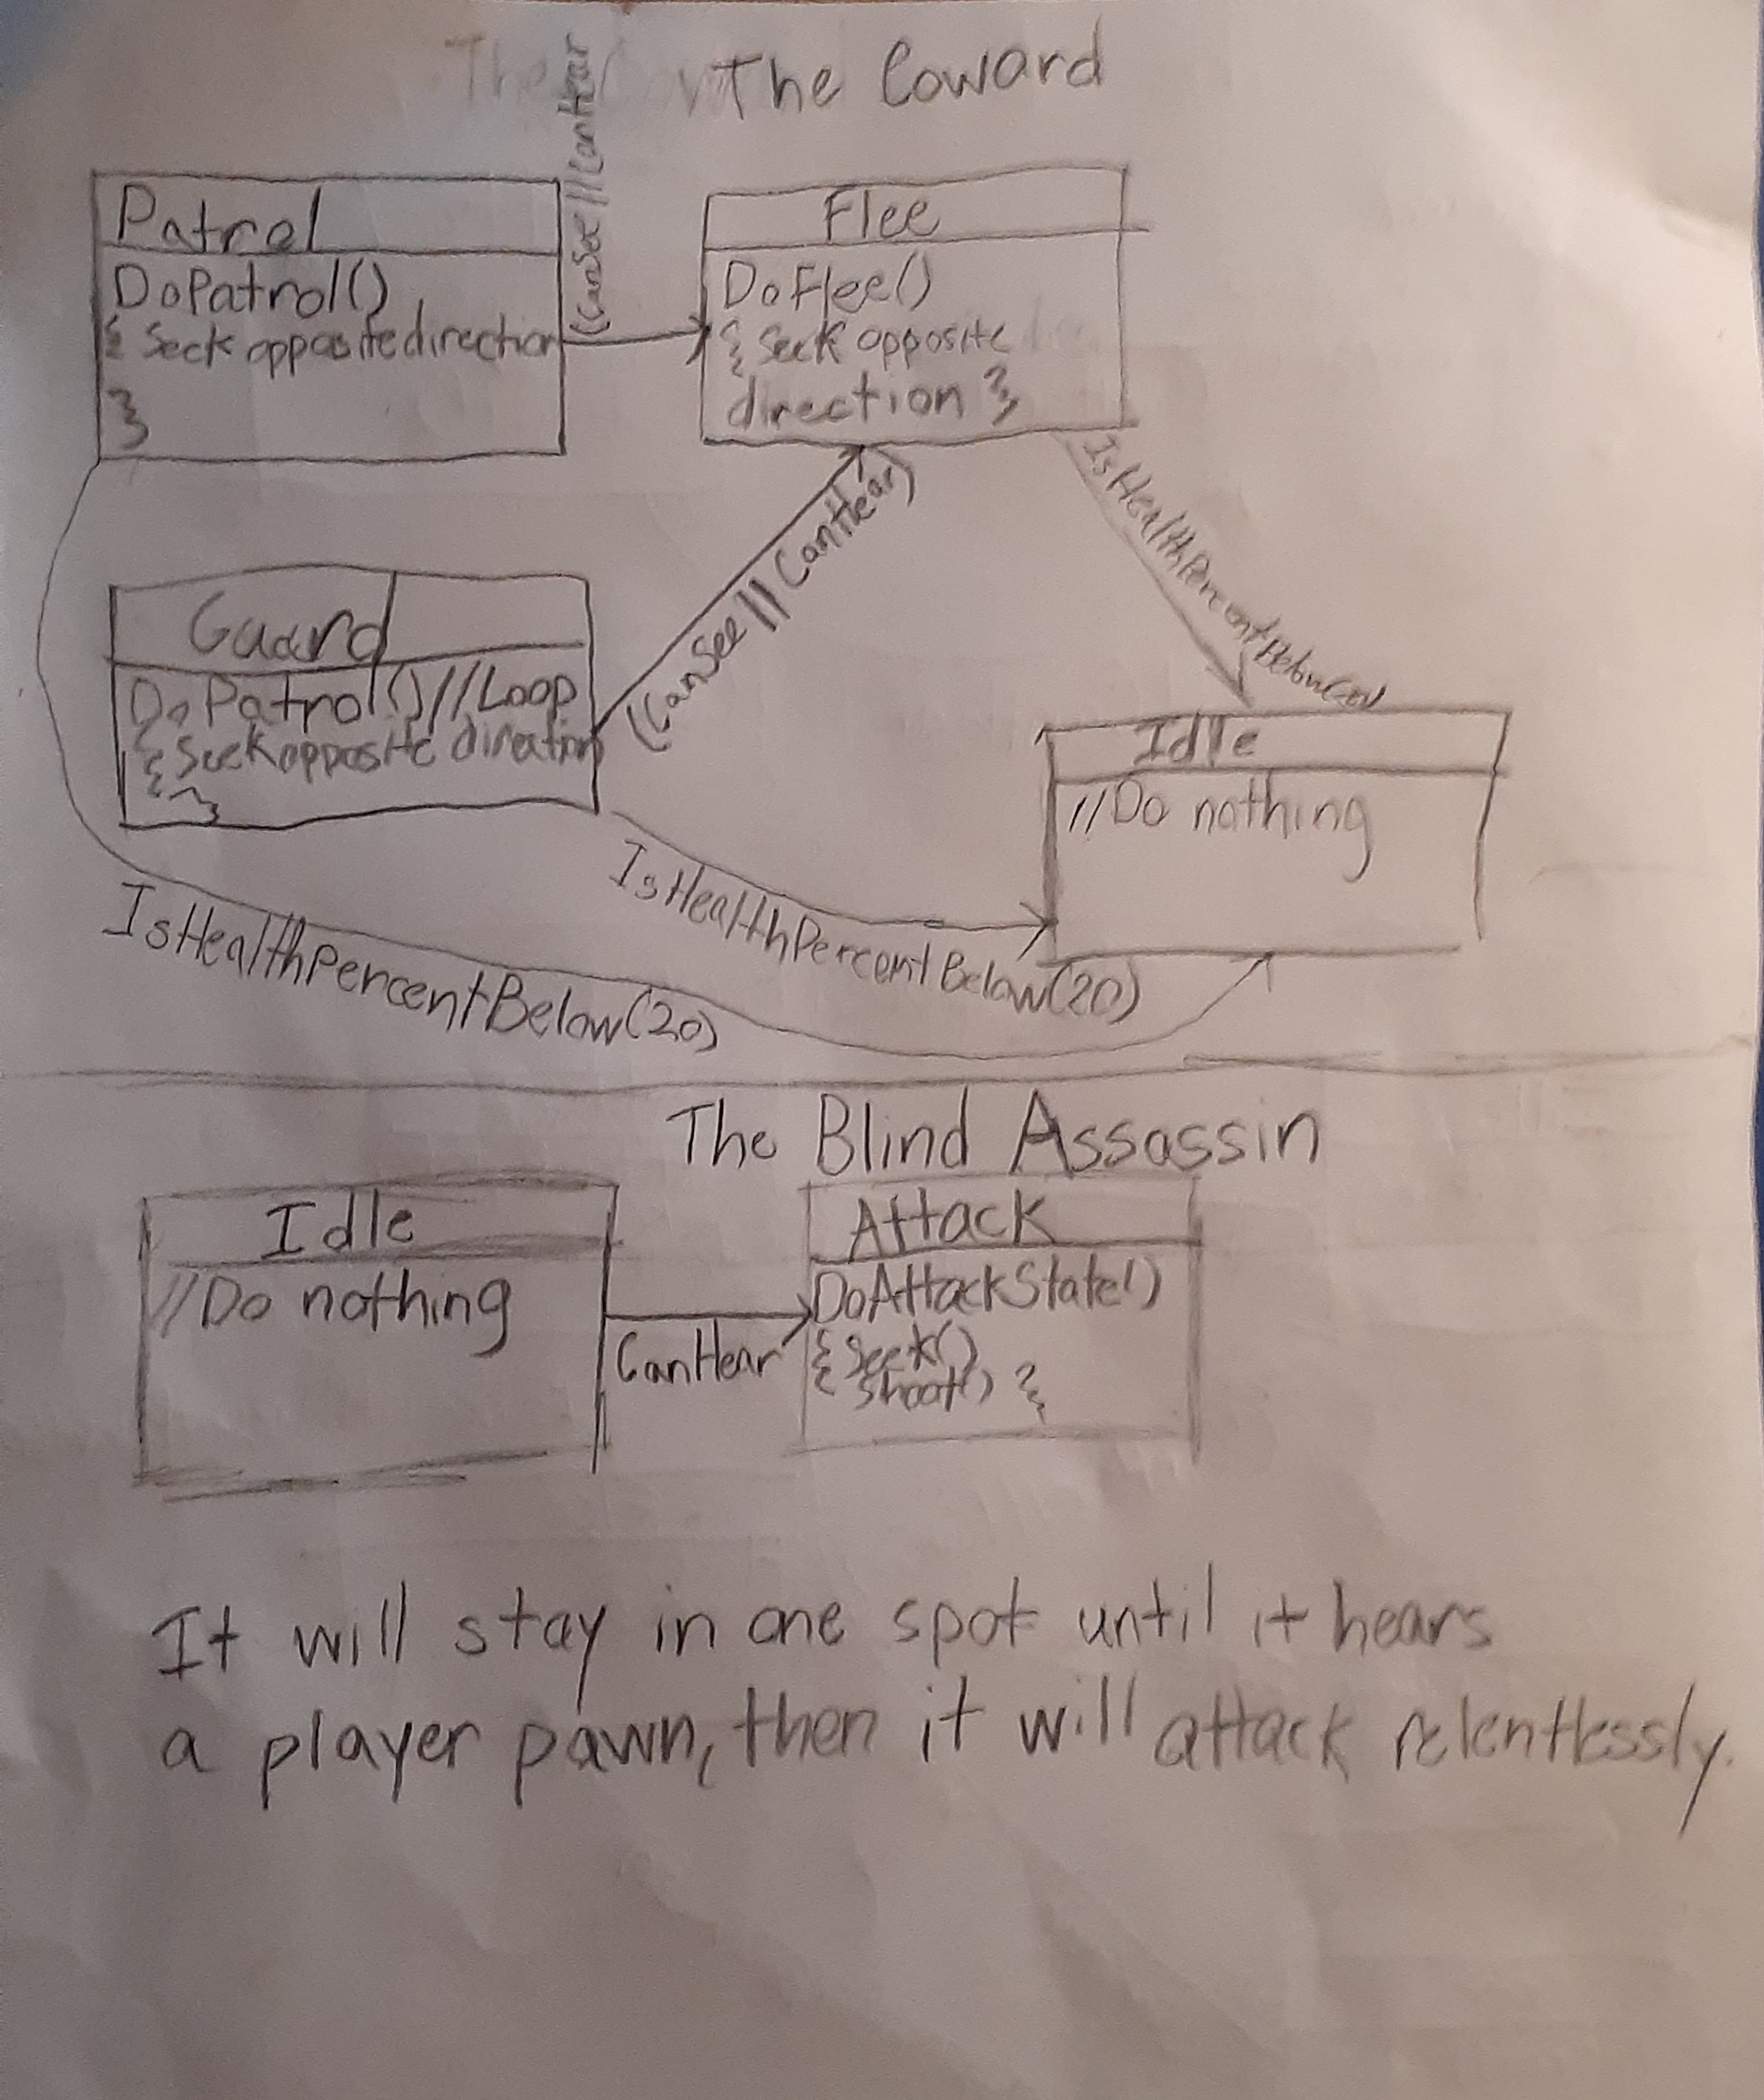 The Coward
(CanSee || CanHear
Patrol
DoPatrol()
{ Seek opposite direction
}
Flee
DoFlee()
{ Seek opposite
direction }
(CanSee || CanHear)
IsHealthPercentBelow(20)
Guard
DoPatrol() //Loop
{ Seek opposite direction
}
Idle
//Do nothing
IsHealthPercentBelow(20)
IsHealthPercentBelow(20)
The Blind Assassin
Idle
//Do nothing
CanHear
Attack
DoAttackState()
{ Seek()
Shoot() }
It will stay in one spot until it hears
a player pawn, then it will attack relentlessly.